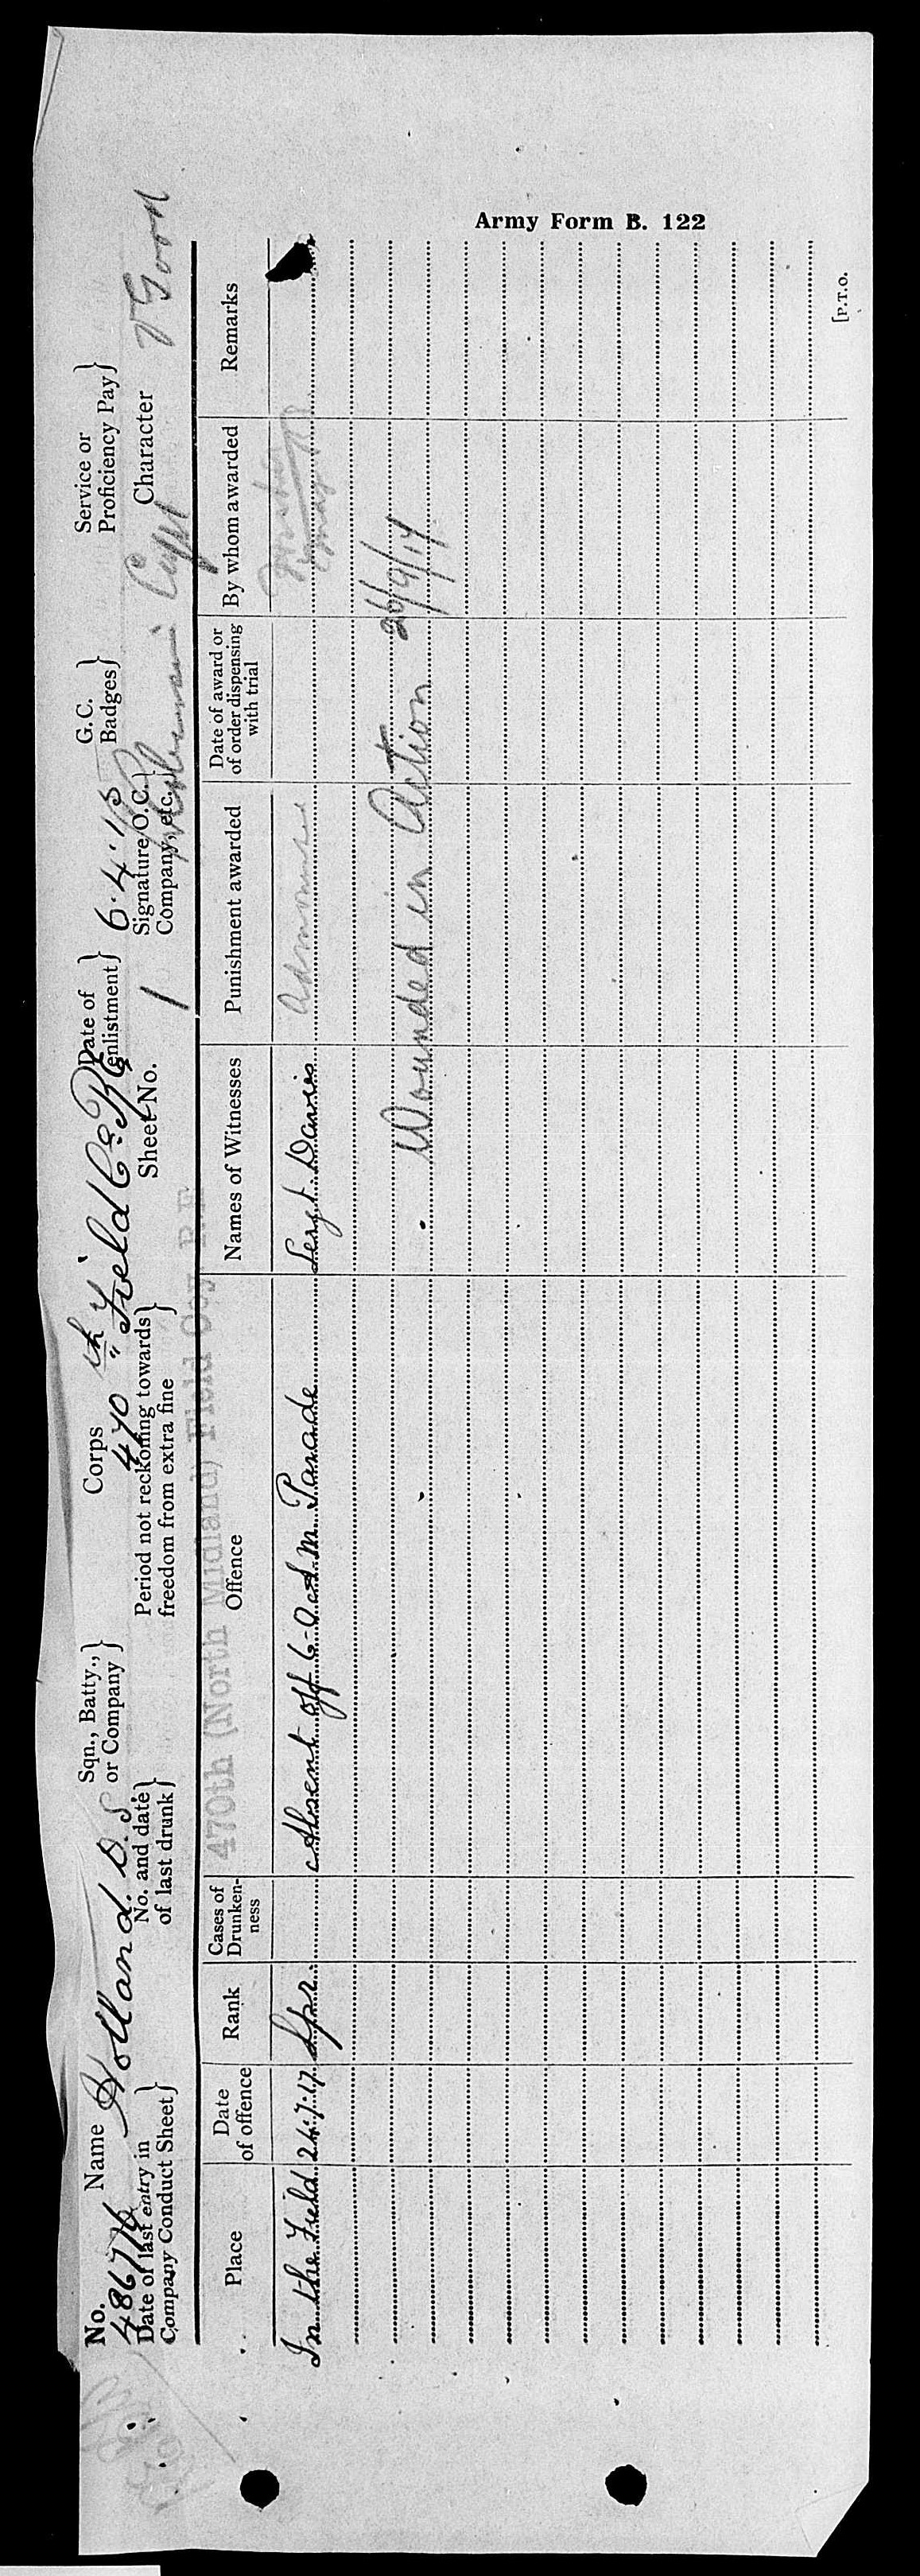 Army Form B. 122
No. Name Sqn., Batty., or Company } Corps Date of enlistment } G.C. Badges } Service or Proficiency Pay }
486776 Holland. D. S 470 th Field Co. R.E 6.4.15
Date of last entry in Company Conduct Sheet } No. and date of last drunk } Period not reckoning towards freedom from extra fine } Sheet No. 1 Signature O.C. Company, etc. } Capt Character V Good
470th (North Midland) Field Coy R.E
Place Date of offence Rank Cases of Drunken-ness Offence Names of Witnesses Punishment awarded Date of award or of order dispensing with trial By whom awarded Remarks
In the Field 24.7.17 Spr. Absent off 6.0 a.m. Parade Sergt. Davies
Wounded in Action 26/9/17
[P.T.O.